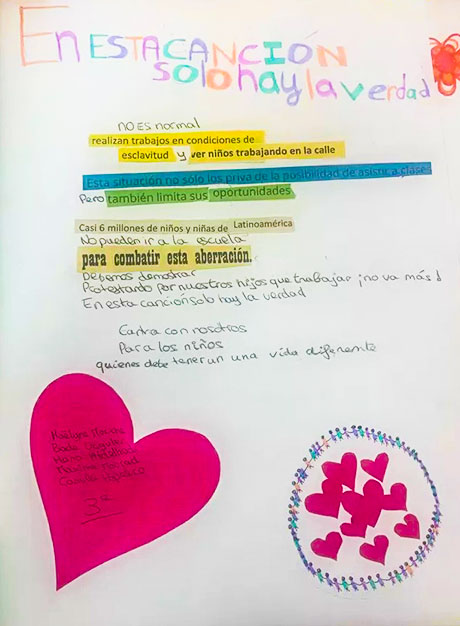 EN ESTA CANCIÓN
solo hay la verdad
NO ES normal
realizan trabajos en condiciones de
esclavitud y ver niños trabajando en la calle
Esta situación no sólo los priva de la posibilidad de asistir a clases
Pero también limita sus oportunidades
Casi 6 millones de niños y niñas de Latinoamérica
No pueden ir a la escuela
para combatir esta aberración.
Debemos demostrar
Protestando por nuestros hijos que trabajar ¡no va más!
En esta canción solo hay la verdad
Canta con nosotros
Para los niños
quienes debe tener un una vida diferente
3